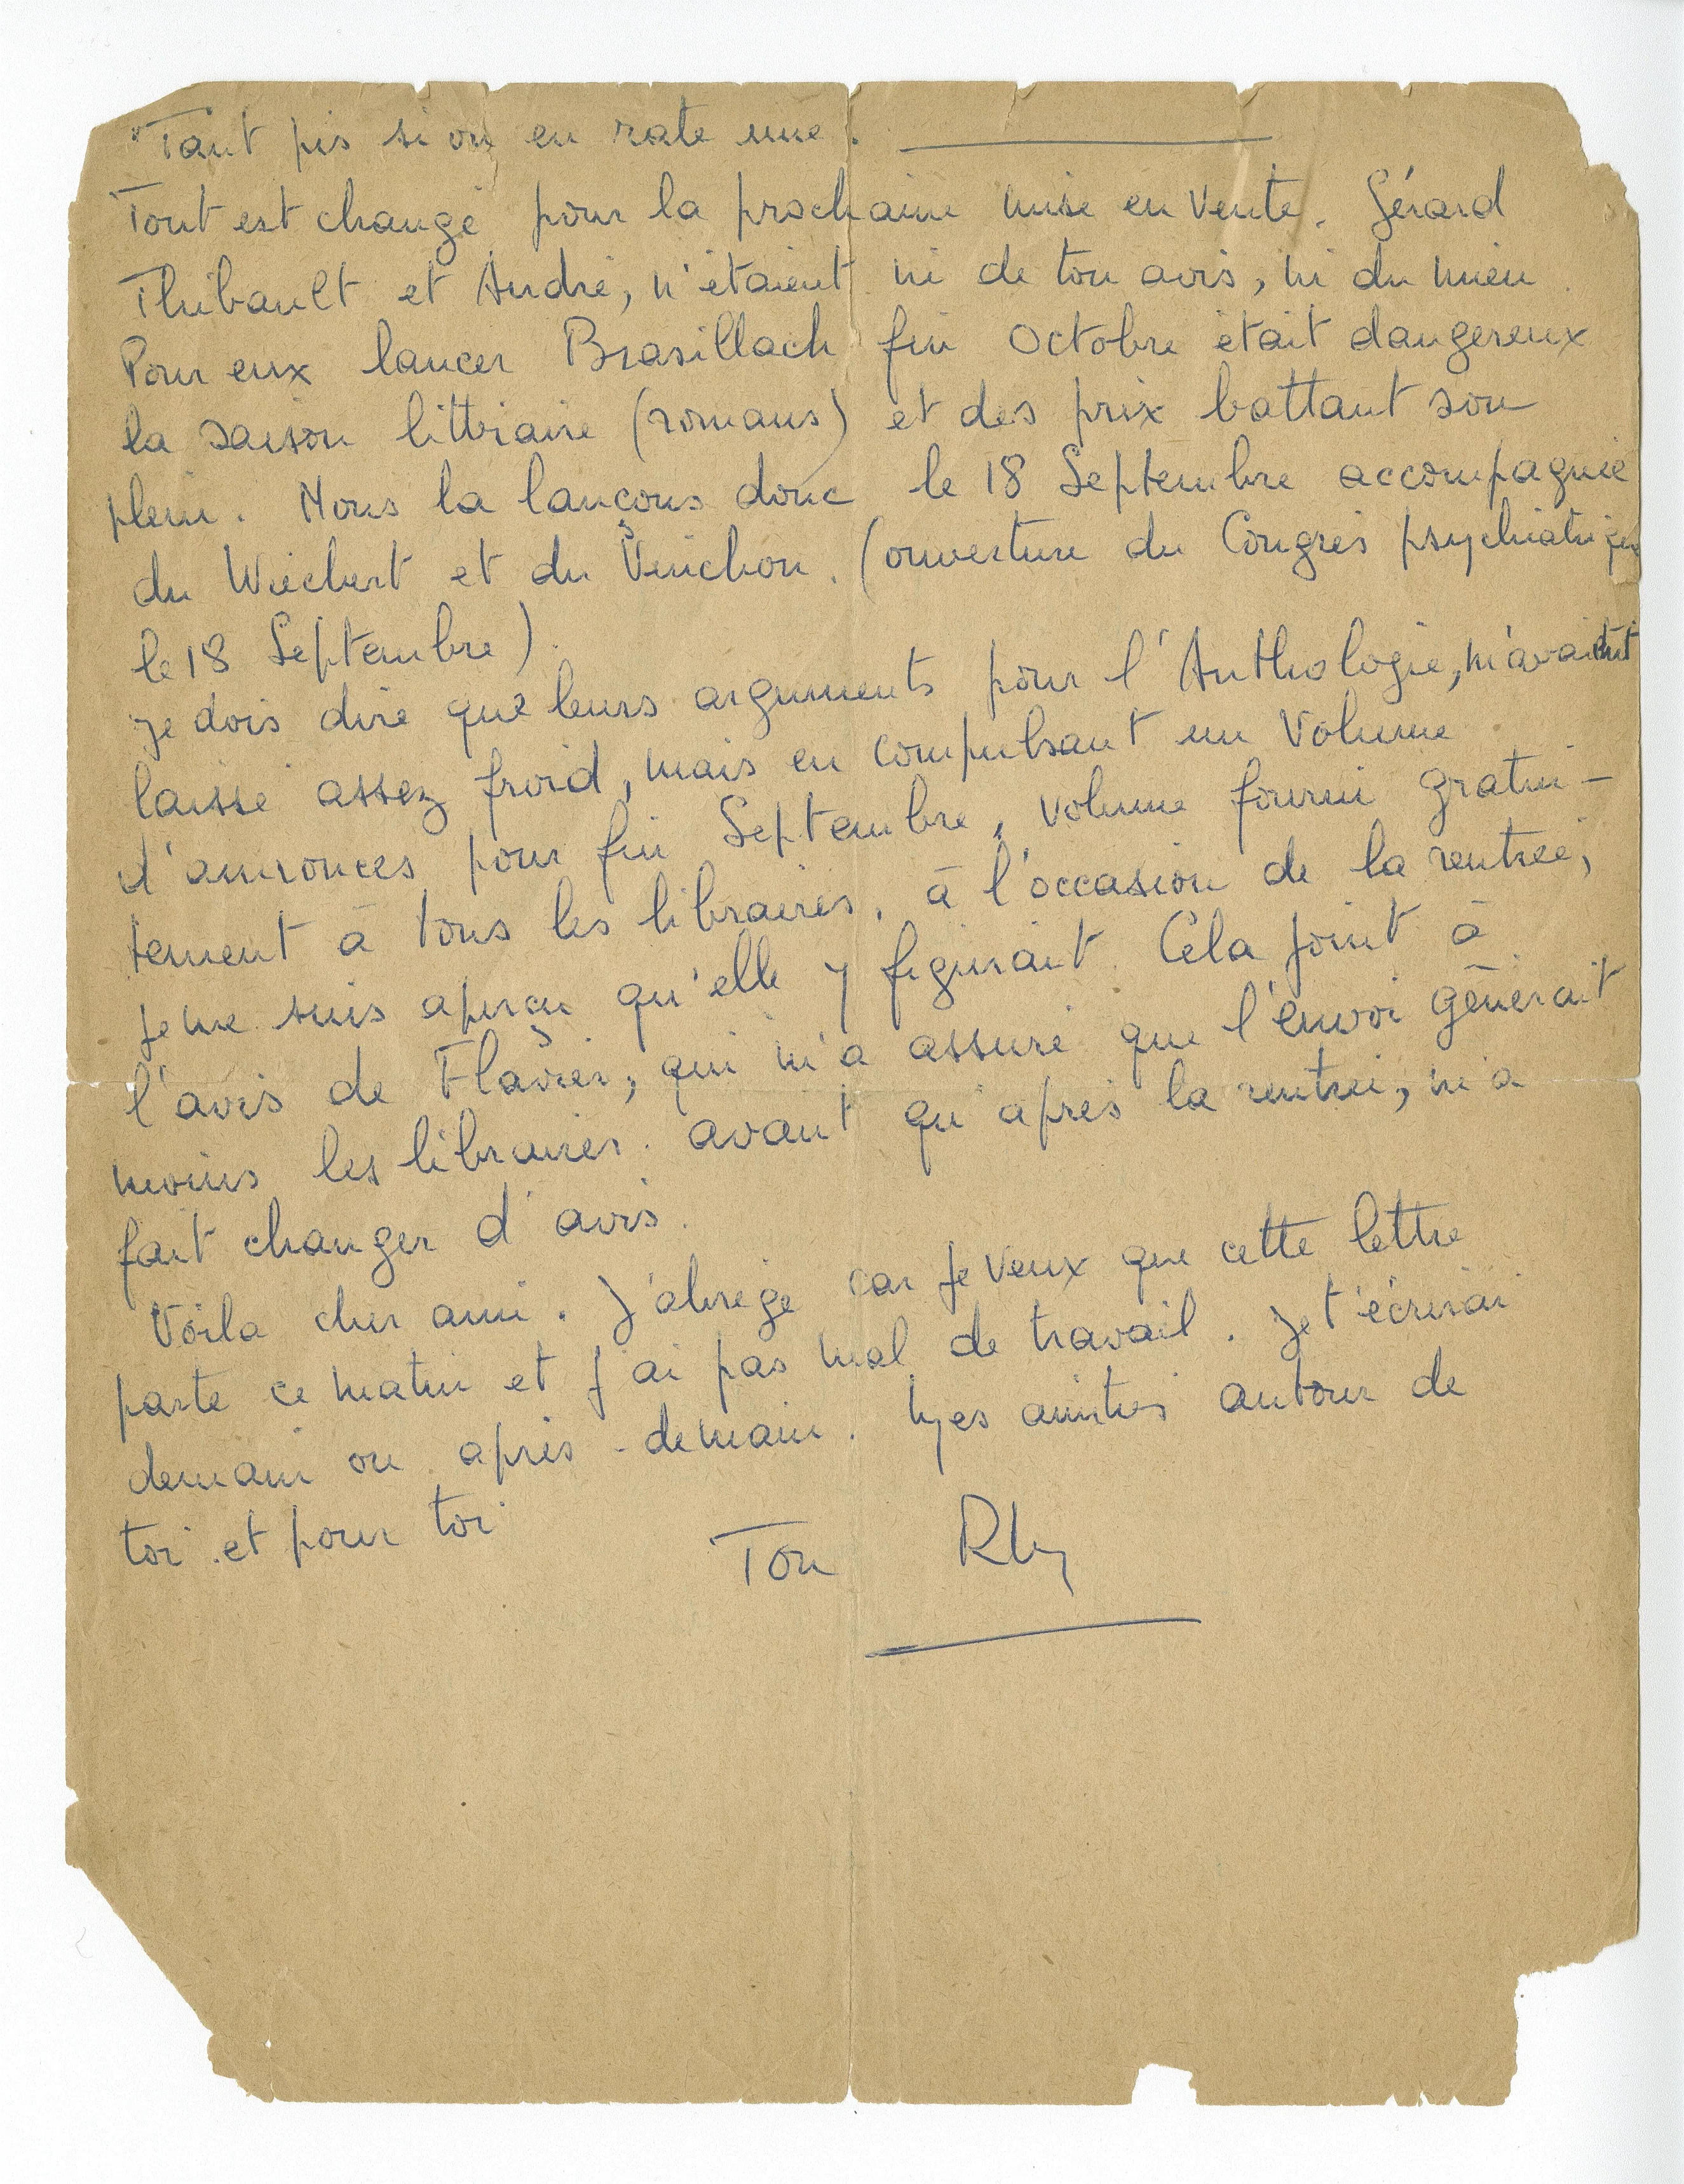 "Tant pis si on en rate une.
Tout est changé pour la prochaine mise en vente. Gérard
Thibault et André, n'étaient ni de ton avis, ni du mien.
Pour eux lancer Brasillach fin Octobre était dangereux
la saison littéraire (romans) et des prix battant son
plein. Nous la lançons donc le 18 Septembre accompagnée
du Wiechert et du Vinchon. (ouverture du Congrès psychiatrique
le 18 Septembre).
Je dois dire que leurs arguments pour l'Anthologie, m'avaient
laissé assez froid, mais en compulsant un volume
d'annonces pour fin Septembre, volume fourni gratui-
tement à tous les libraires, à l'occasion de la rentrée,
je me suis aperçu qu'elle y figurait. Cela joint à
l'avis de Flavier, qui m'a assuré que l'envoi gênerait
moins les libraires avant qu'après la rentrée, m'a
fait changer d'avis.
Voila cher ami. J'abrège car je veux que cette lettre
parte ce matin et j'ai pas mal de travail. Je t'écrirai
demain ou après-demain. Mes amitiés autour de
toi et pour toi
Ton Rby